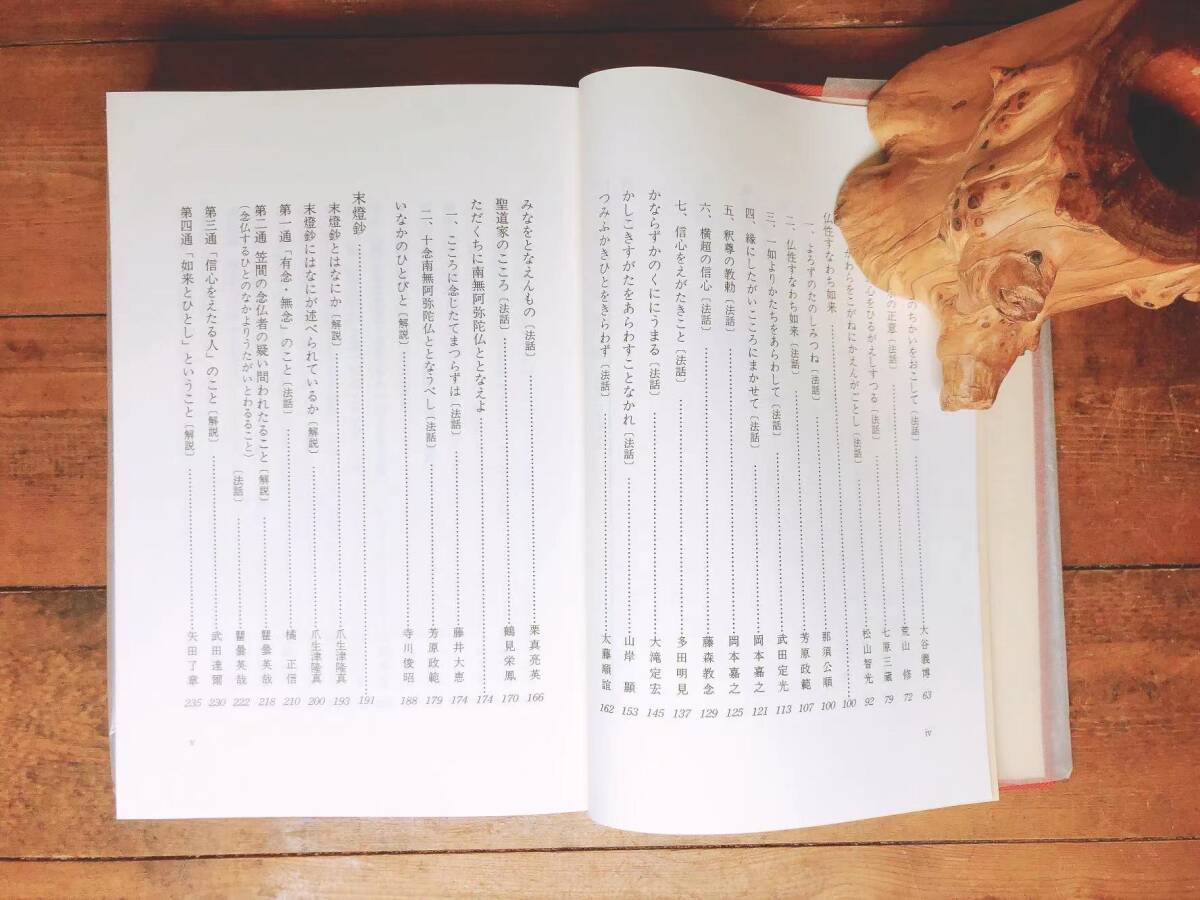 のちかいをおこして〔法話〕……大谷義博 63
の正意〔法話〕……荒山　修 72
ろをひるがえしすつる〔法話〕……七原三蔵 79
かわらをこがねにかえんがごとし〔法話〕……松山智光 92
仏性すなわち如来……100
一、よろずのたのしみつね〔法話〕……那須公順 100
二、仏性すなわち如来〔法話〕……芳原政範 107
三、一如よりかたちをあらわして〔法話〕……武田定光 113
四、縁にしたがいこころにまかせて〔法話〕……岡本嘉之 121
五、釈尊の教勅〔法話〕……岡本嘉之 125
六、横超の信心〔法話〕……藤森教念 129
七、信心をえがたきこと〔法話〕……多田明見 137
かならずかのくににうまる〔法話〕……大滝定宏 145
かしこきすがたをあらわすことなかれ〔法話〕……山岸　顯 153
つみふかきひとをきらわず〔法話〕……太藤順誼 162
iv
みなをとなえんもの〔法話〕……栗真亮英 166
聖道家のこころ〔法話〕……鶴見栄鳳 170
ただくちに南無阿弥陀仏ととなえよ……174
一、こころに念じたてまつらずは〔法話〕……藤井大恵 174
二、十念南無阿弥陀仏ととなうべし〔法話〕……芳原政範 179
いなかのひとびと〔解説〕……寺川俊昭 188
末燈鈔……191
末燈鈔とはなにか〔解説〕……爪生津隆真 193
末燈鈔にはなにが述べられているか〔解説〕……爪生津隆真 200
第一通「有念・無念」のこと〔法話〕……橘　正信 210
第二通 笠間の念仏者の疑い問われたること〔解説〕……瞿曇英哉 218
（念仏するひとのなかよりうたがいとわるること）〔法話〕……瞿曇英哉 222
第三通「信心をえたる人」のこと〔解説〕……武田達爾 230
第四通「如来とひとし」ということ〔解説〕……矢田了章 235
v